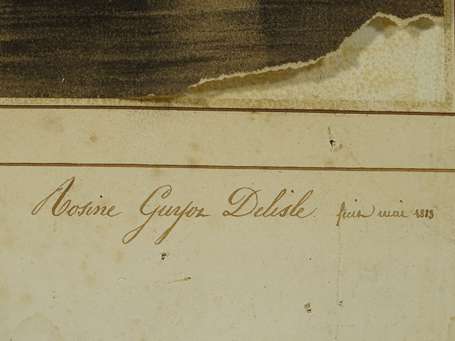 Rosine Guyon Delisle. fecit mai 1813